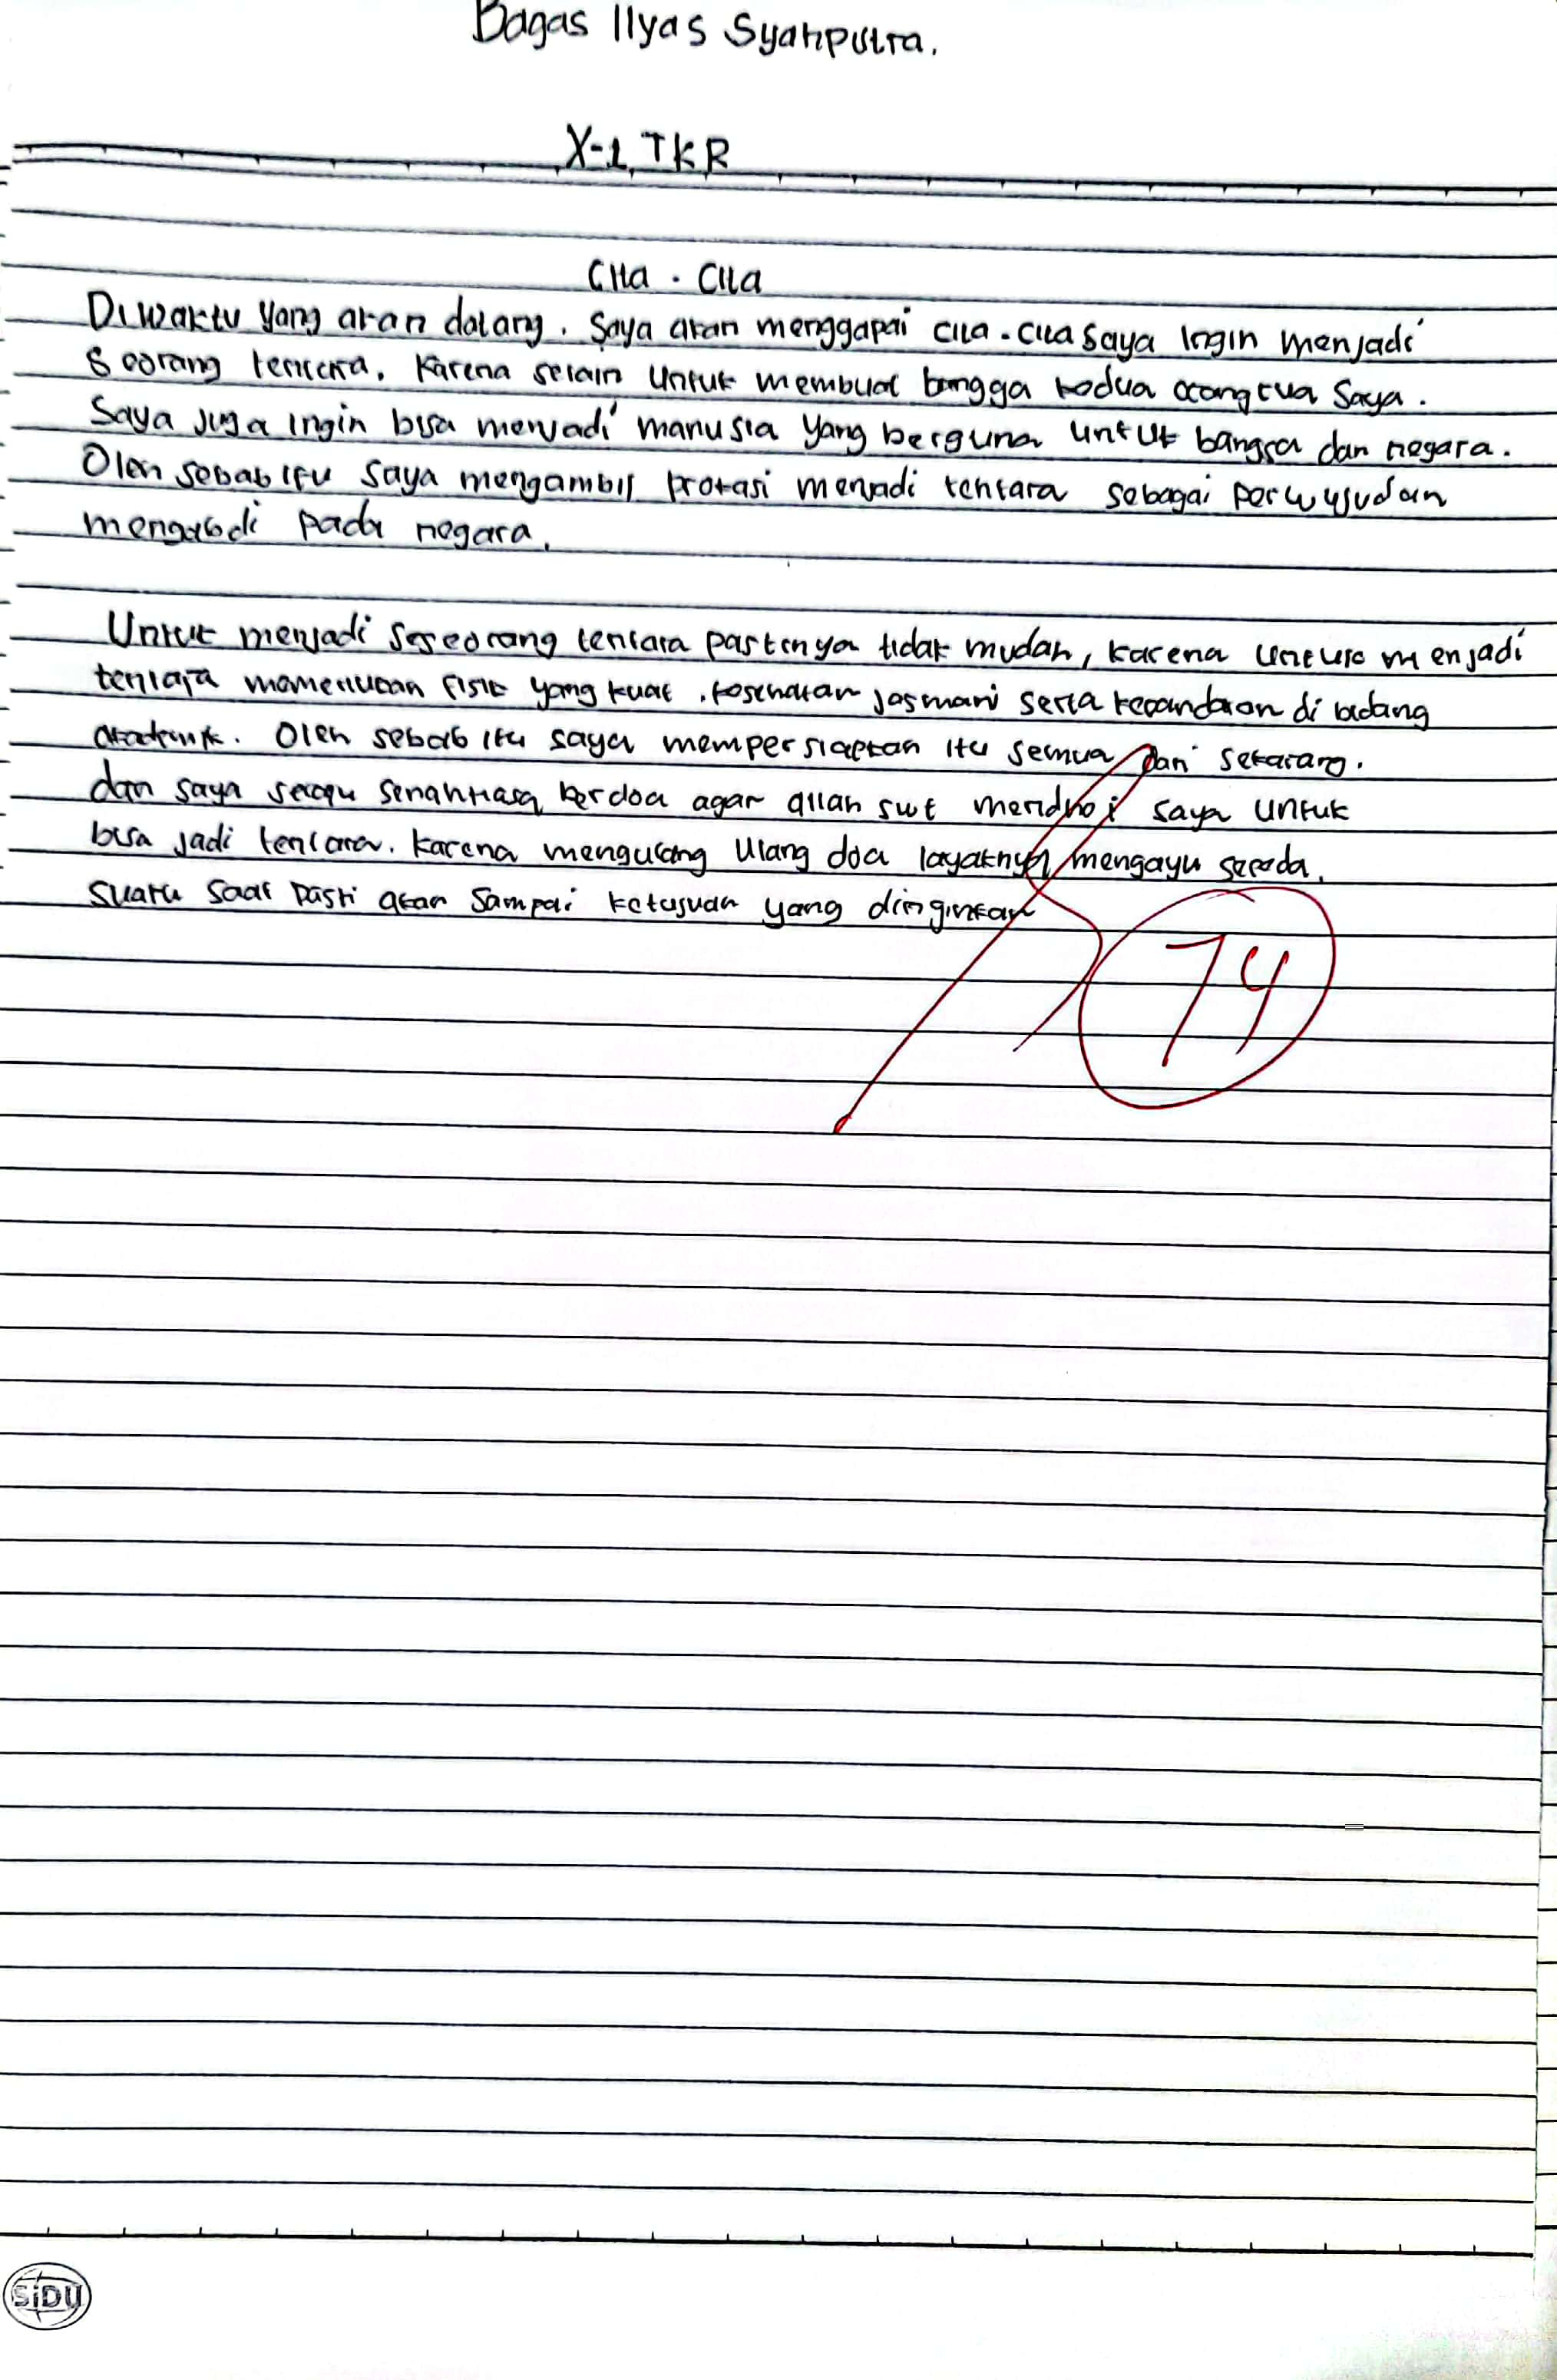 Bagas Ilyas Syahputra.
X-1 TKR
Cita - Cita
Diwaktu yang akan datang. Saya akan menggapai cita-cita saya Ingin menjadi
Seorang tentara. Karena selain untuk membuat bangga kedua orang tua Saya.
Saya juga ingin bisa menjadi manusia yang berguna untuk bangsa dan negara.
Oleh sebab itu saya mengambil profasi menjadi tentara sebagai perwujudan
mengabdi pada negara.
Untuk menjadi seseorang tentara pastinya tidak mudah, karena untuk menjadi
tentara memerlukan fisik yang kuat. kesehatan jasmani serta kepandaian di bidang
akademik. Oleh sebab itu saya mempersiapkan itu semua dari sekarang.
dan saya senantiasa berdoa agar allah swt meridhoi saya untuk
bisa jadi tentara. karena mengulang ulang doa layaknya mengayu sepeda.
suatu saat pasti akan sampai ketujuan yang diinginkan
74
SiDU